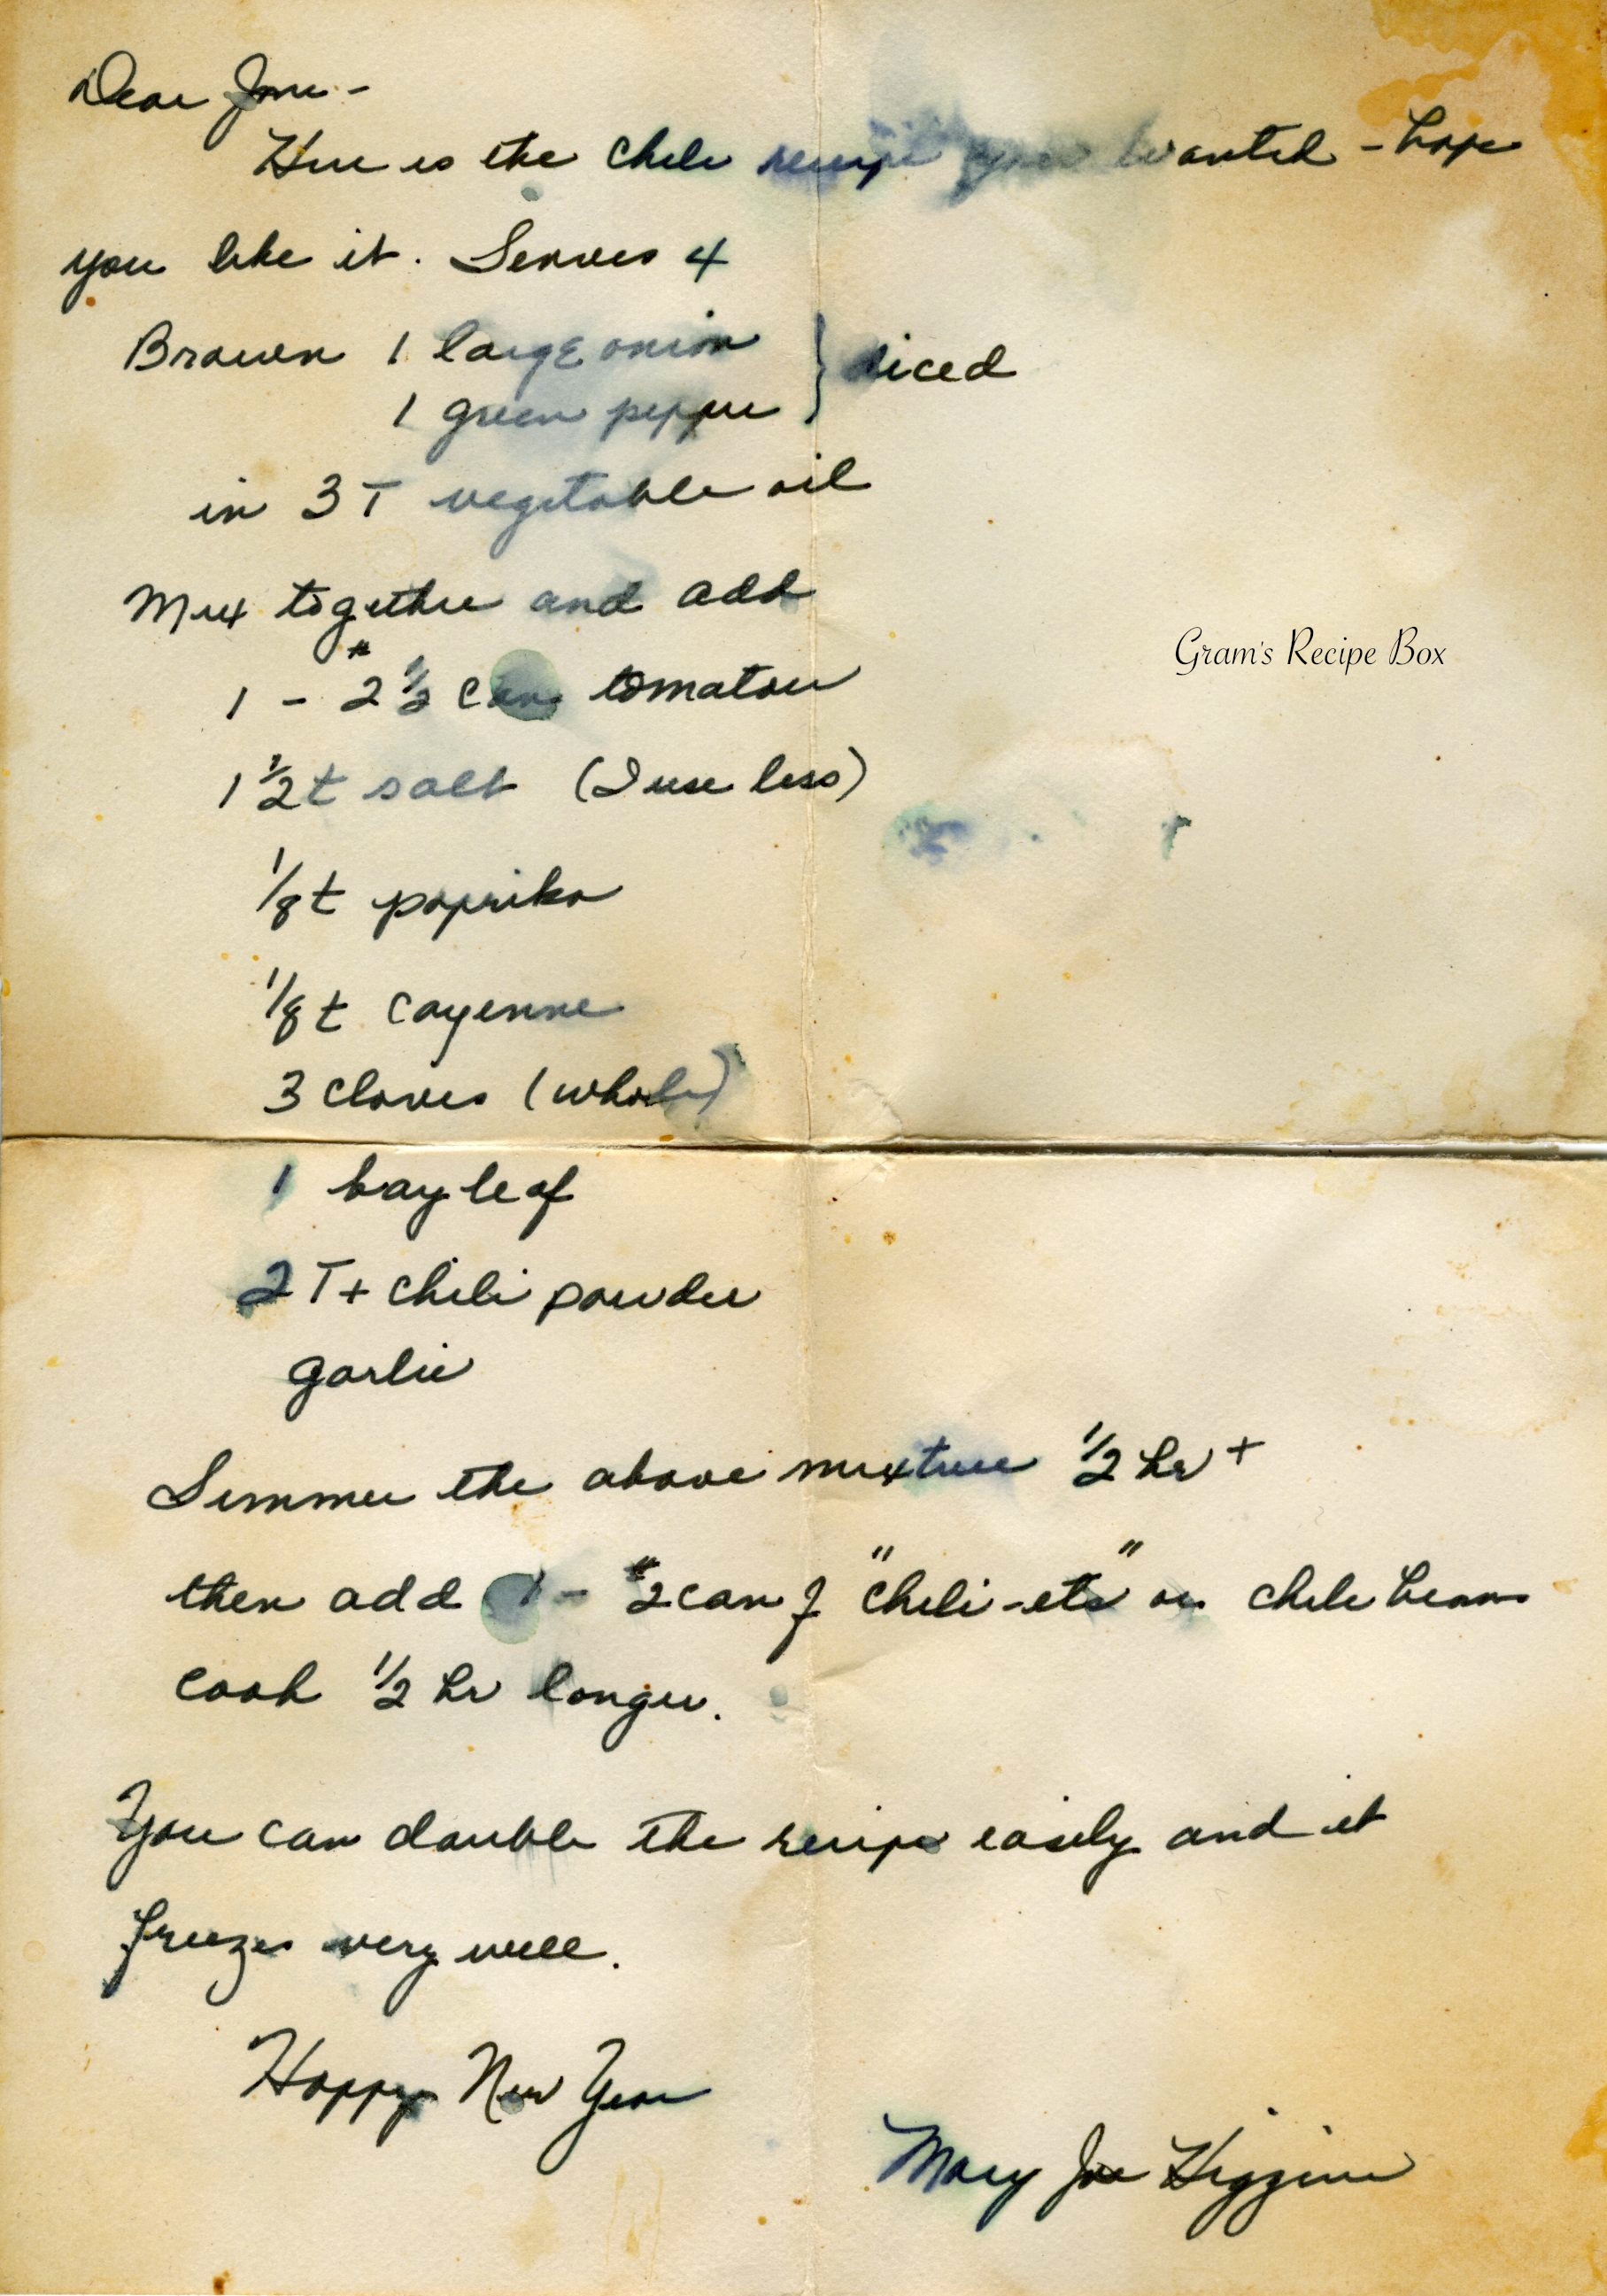 Dear Jane -
Here is the chili recipe you wanted - hope
you like it. Serves 4
Brown 1 large onion } diced
1 green pepper
in 3 T vegetable oil
Mix together and add
1 - #2 1/2 can tomatoes
Gram's Recipe Box
1 1/2 t salt (I use less)
1/8 t paprika
1/8 t cayenne
3 cloves (whole)
1 bay leaf
2 T + chili powder
garlic
Simmer the above mixture 1/2 hr +
then add 1 - #2 can of "chili-ets" or chili beans
cook 1/2 hr longer.
You can double the recipe easily and it
freezes very well.
Happy New Year
Mary Joe Higgins